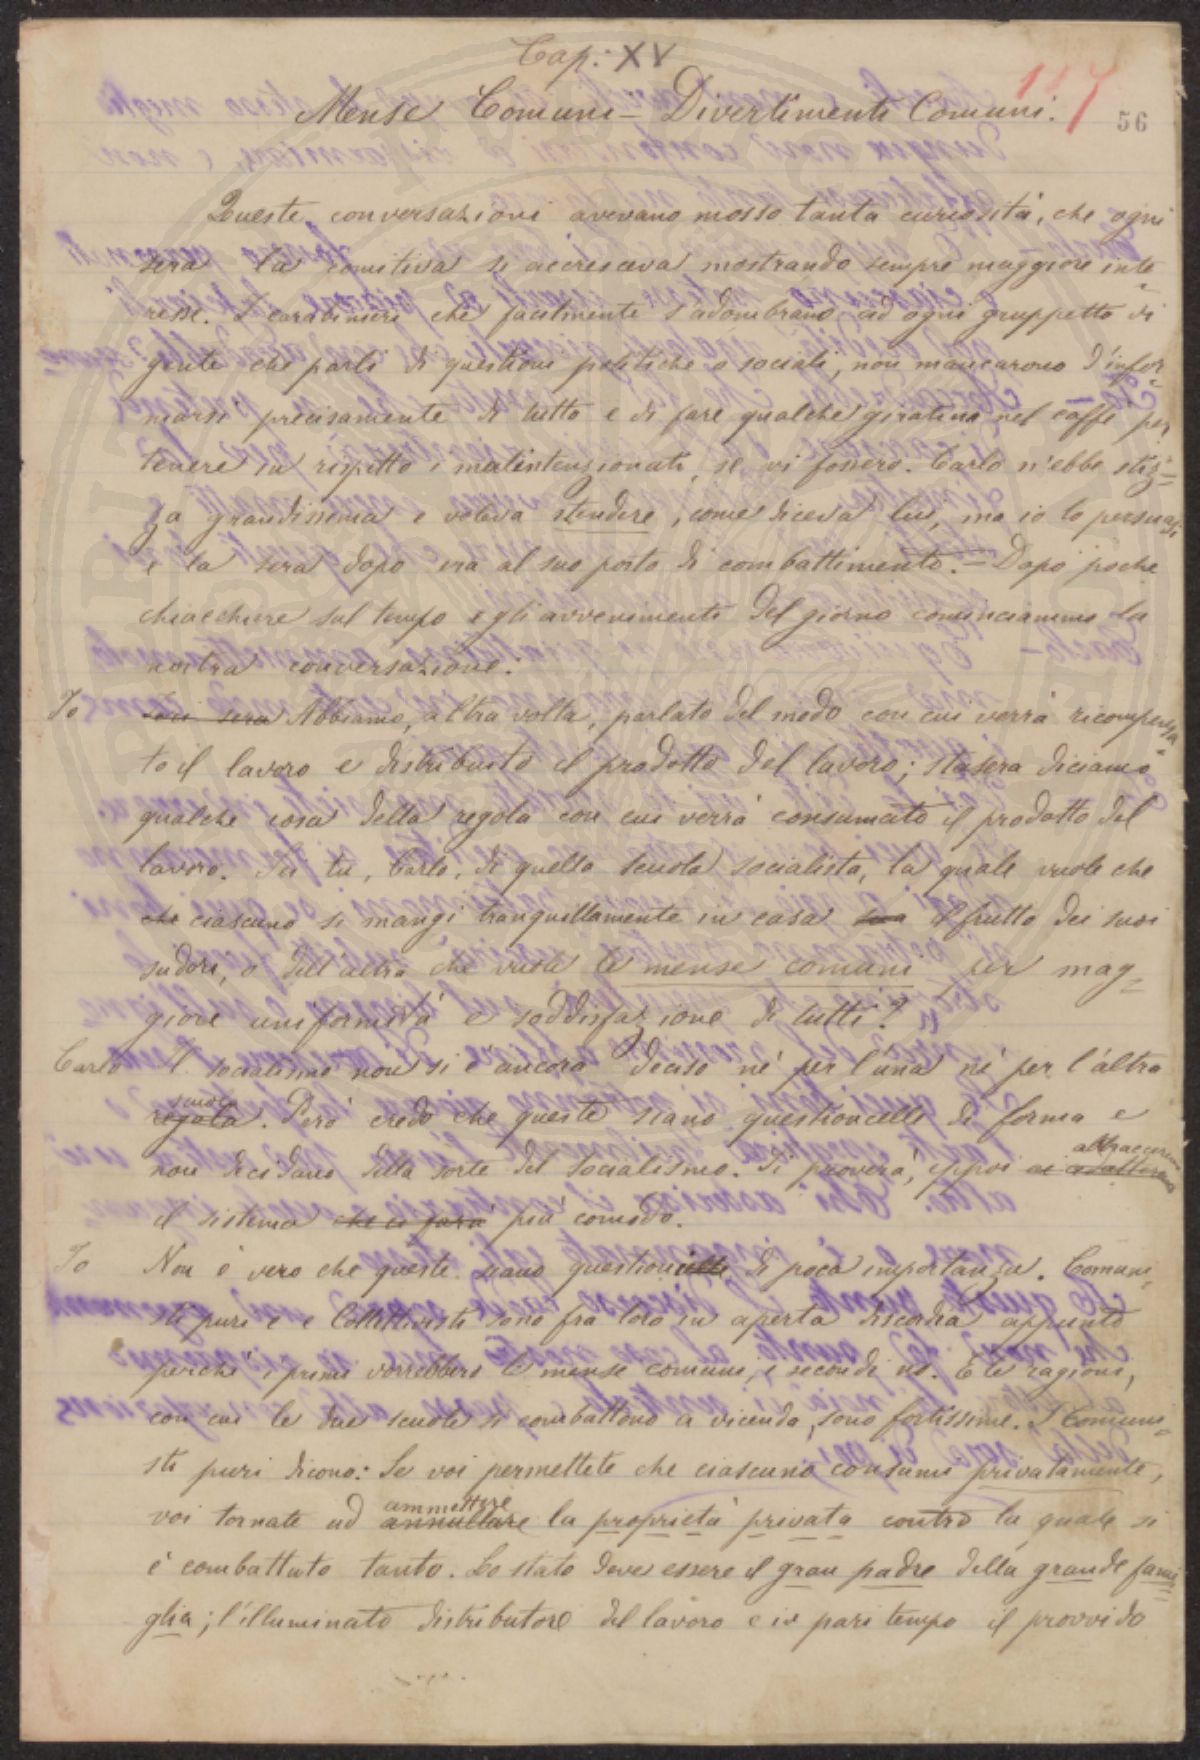 Cap: XV
117
Mense Comuni – Divertimenti Comuni.
56
Queste conversazioni avevano mosso tanta curiosità, che ogni
sera la comitiva si accresceva mostrando sempre maggiore inte-
resse. I carabinieri che facilmente s'adombrano ad ogni gruppetto di
gente che parli di questioni politiche o sociali, non mancarono d'infor-
marsi precisamente di tutto e di fare qualche giratina nel caffè per
tenere in rispetto i malintenzionati, se vi fossero. Carlo n'ebbe stiz-
za grandissima e voleva stendere, come diceva lui, ma io lo persuasi
e la sera dopo era al suo posto di combattimento. – Dopo poche
chiacchiere sul tempo e gli avvenimenti del giorno cominciammo la
nostra conversazione:
Io sera Abbiamo, altra volta, parlato del modo con cui verrà ricompensa-
to il lavoro e distribuito il prodotto del lavoro; stasera diciamo
qualche cosa della regola con cui verrà consumato il prodotto del
lavoro. Sei tu, Carlo, di quella scuola socialista, la quale vuole che
che ciascuno si mangi tranquillamente in casa sua il frutto dei suoi
sudori, o dell'altra che vuole le mense comuni per mag-
giore uniformità e soddisfazione di tutti?
Carlo Il socialismo non si è ancora deciso nè per l'una nè per l'altra
scuola
regola. Però credo che queste siano questioncelle di forma e
non decidano della sorte del socialismo. Si proverà, eppoi
il sistema che ci farà più comodo.
Io Non è vero che queste siano questioncelle di poca importanza. Comuni-
sti puri e Collettivisti sono fra loro in aperta discordia appunto
perchè i primi vorrebbero le mense comuni, i secondi no. E le ragioni,
con cui le due scuole si combattono a vicenda, sono fortissime. I Comuni-
sti puri dicono: Se voi permettete che ciascuno consumi privatamente,
ammettere
voi tornate ad annullare la proprietà privata contro la quale si
è combattuto tanto. Lo stato deve essere il gran padre della grande fami-
glia; l'illuminato distributore del lavoro e in pari tempo il provvido